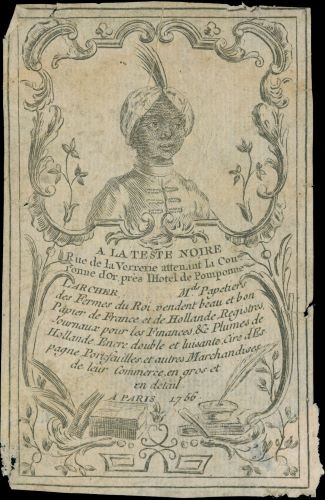 A LA TESTE NOIRE
Rue de la Verrerie attenant la Cou-
ronne d'or, près l'Hotel de Pomponne
LARCHER, Md. Papetier
des Fermes du Roi, vendent beau et bon
Papier de France et de Hollande, Registres,
Journaux pour les Finances, & Plumes de
Hollande Encre double et luisante, Cire d'Es
pagne, Portefeuilles et autres Marchandises
de leur Commerce, en gros et
en detail
A PARIS 1766.